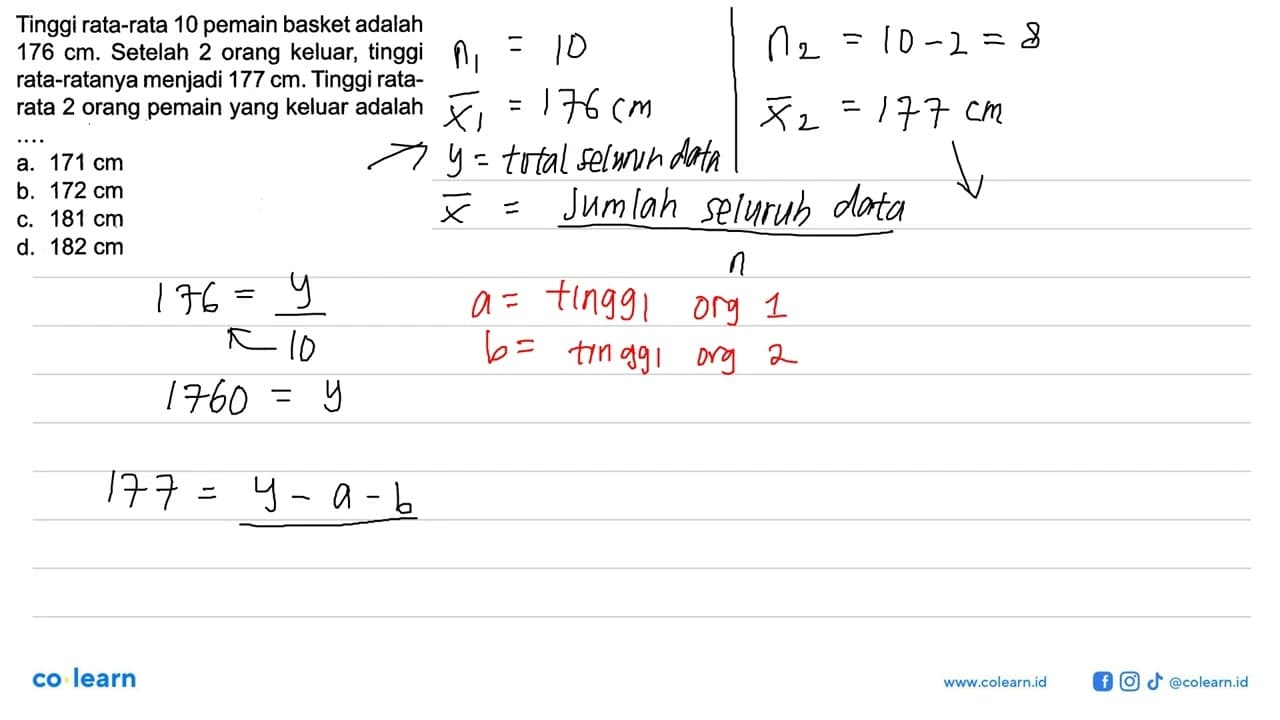 Tinggi rata-rata 10 pemain basket adalah
176 cm. Setelah 2 orang keluar, tinggi
rata-ratanya menjadi 177 cm. Tinggi rata-
rata 2 orang pemain yang keluar adalah
....
a. 171 cm
b. 172 cm
c. 181 cm
d. 182 cm
n₁ = 10
x̅₁ = 176 cm
n₂ = 10 - 2 = 8
x̅₂ = 177 cm
y = total seluruh data
x̅ = Jumlah seluruh data
n
176 = y
10
1760 = y
a = tinggi org 1
b = tinggi org 2
177 = y - a - b
co learn
www.colearn.id
@colearn.id